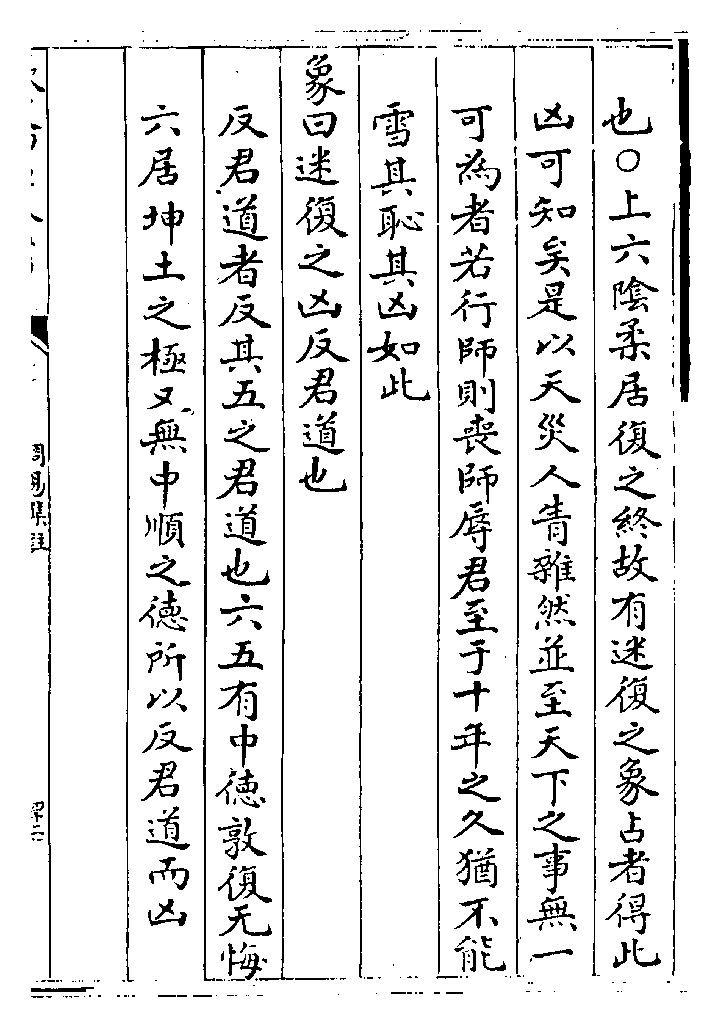 也○上六陰柔居復之終故有迷復之象占者得此
凶可知矣是以天災人眚雜然並至天下之事無一
可為者若行師則喪師辱君至于十年之久猶不能
雪其恥其凶如此
象曰迷復之凶反君道也
反君道者反其五之君道也六五有中徳敦復无悔
六居坤土之極又無中順之徳所以反君道而凶
周易集註